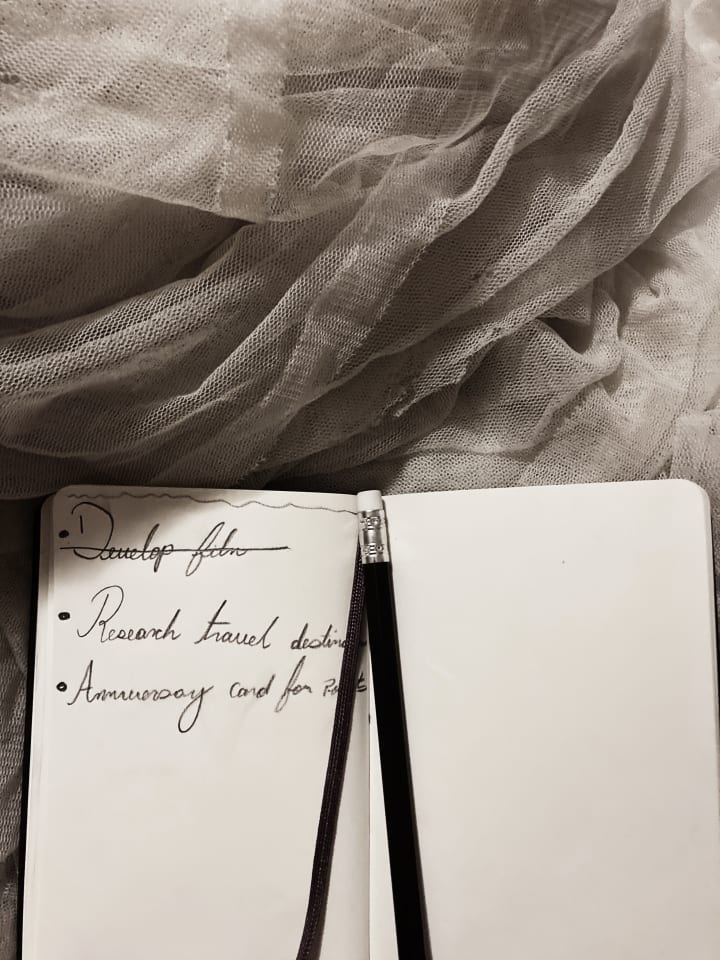 Develop film
Research travel destin
Anniversary card for